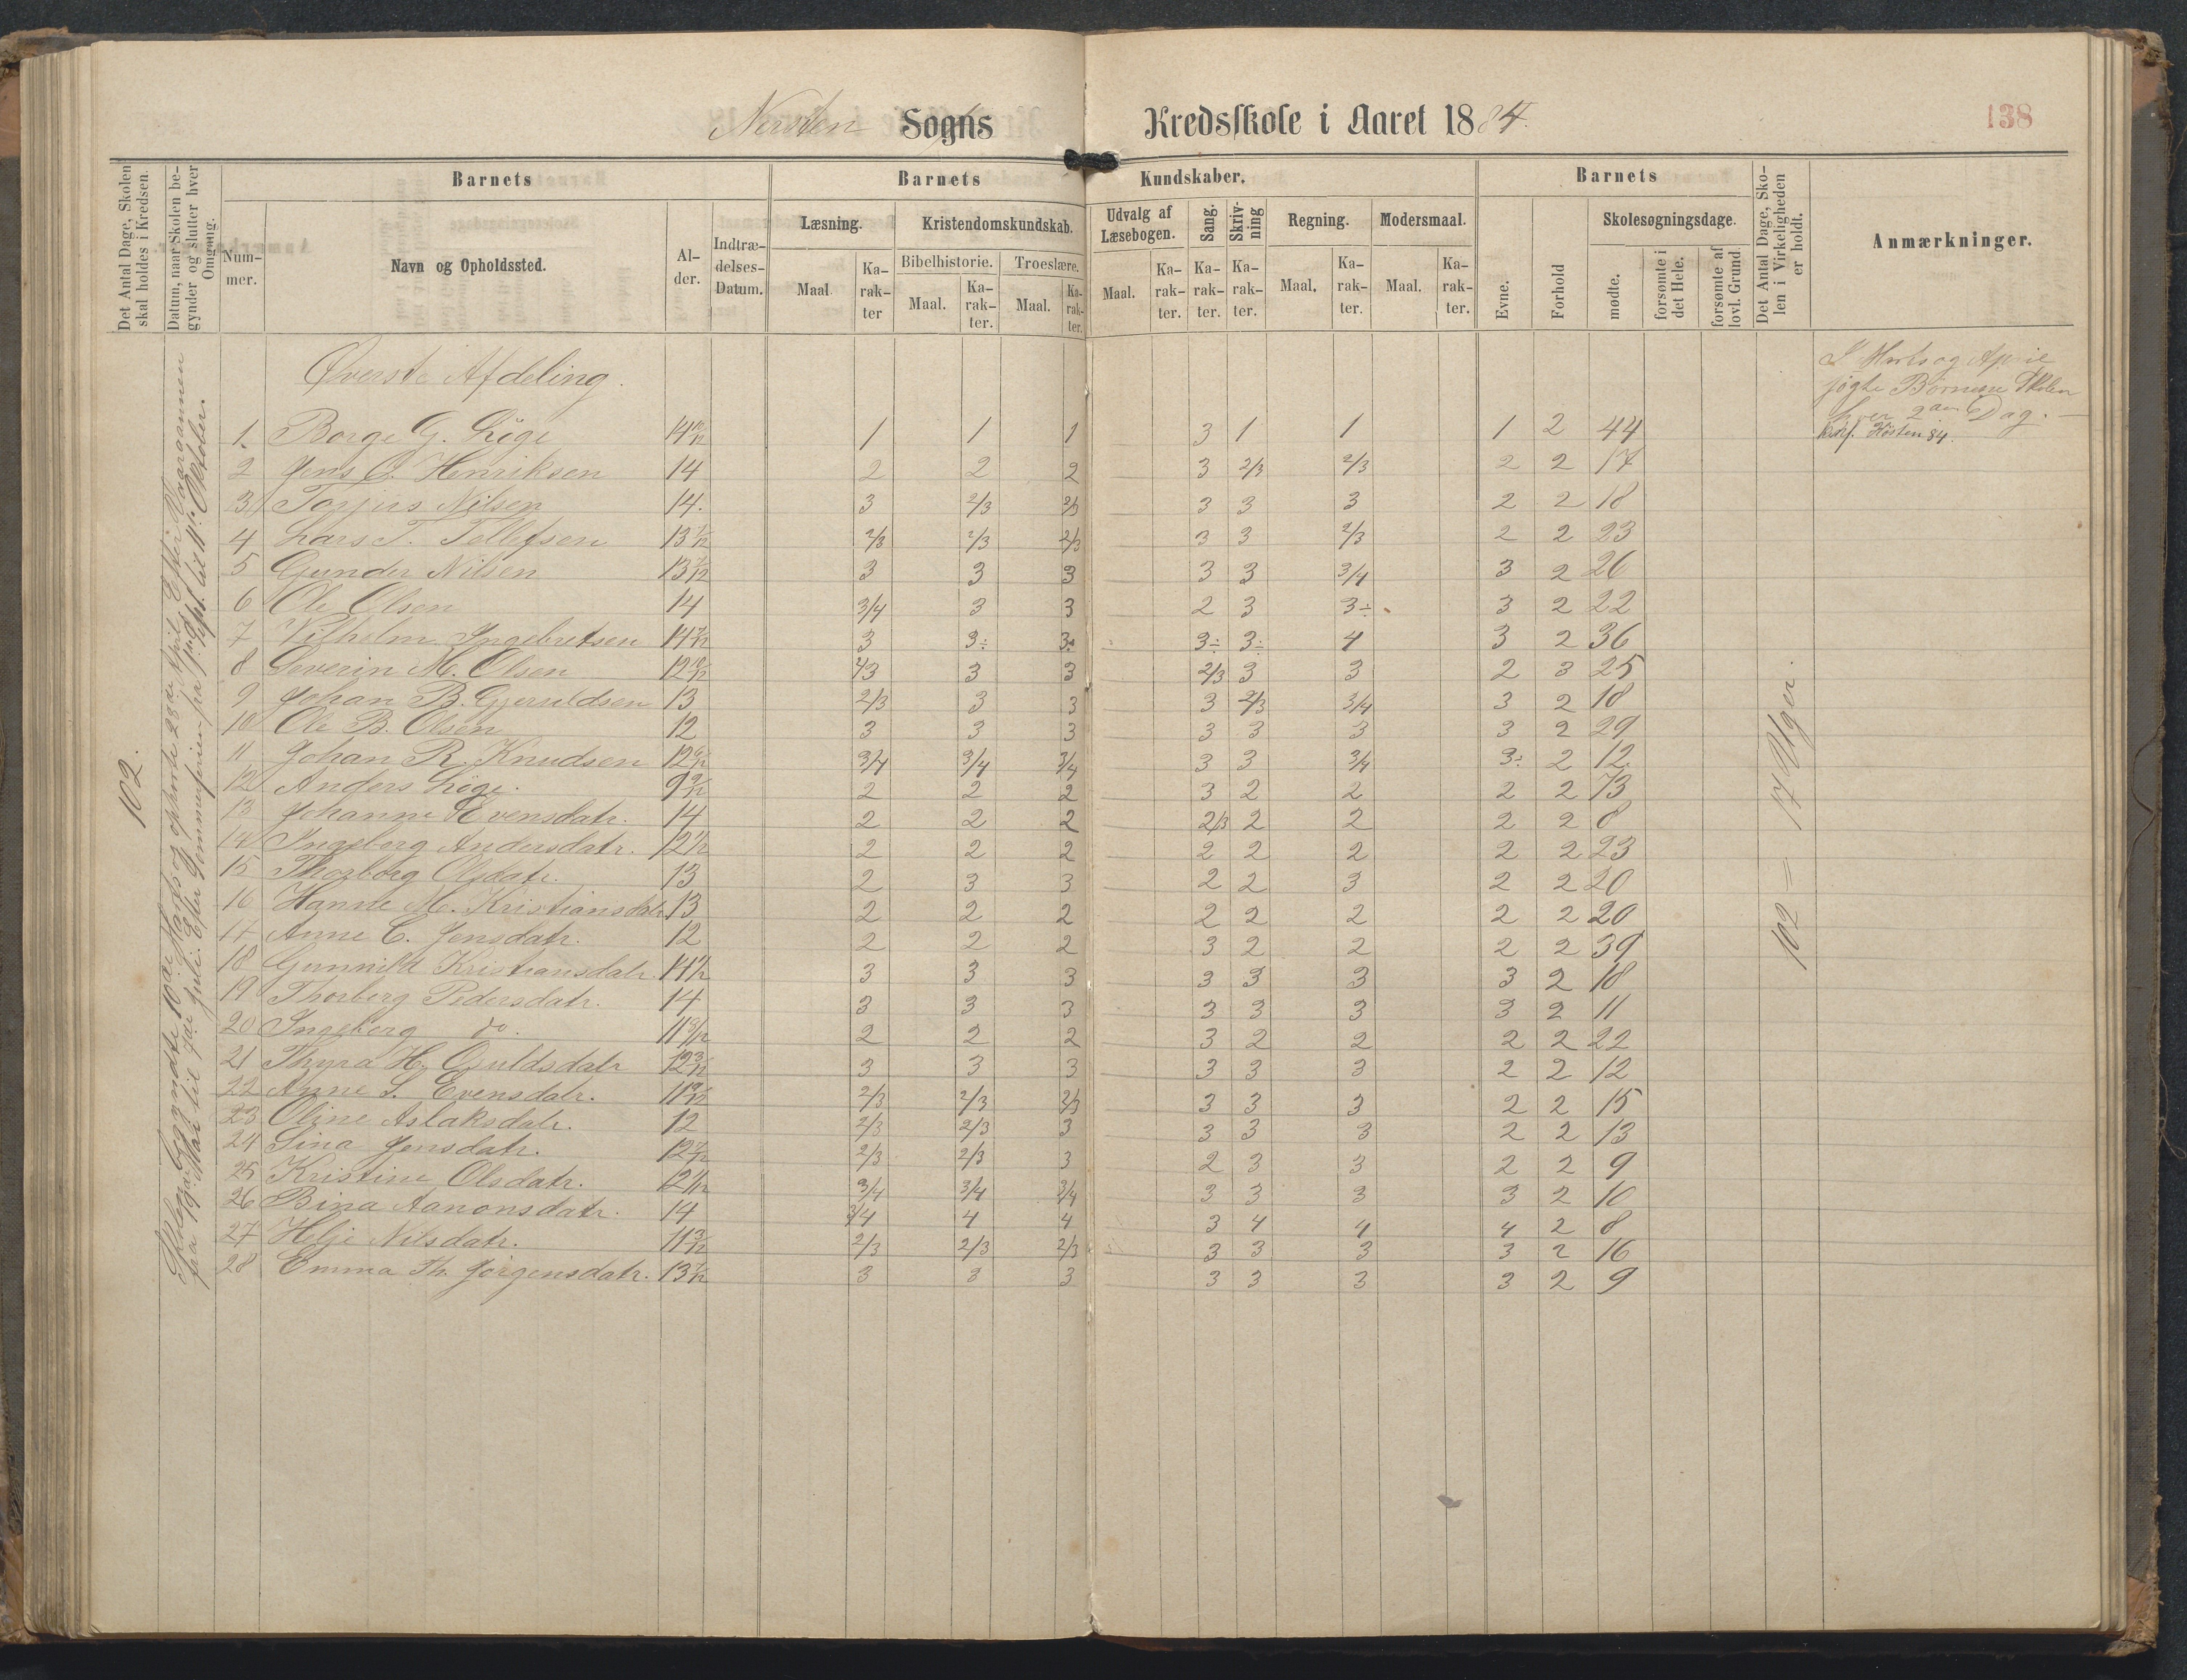 Sogns Kredsskole i Aaret 1884.
138
Det Antal Dage, Skolen skal holdes i Kredsen.
Datum, naar Skolen begynder og slutter hver Omgang.
Barnets
Nummer.
Navn og Opholdssted.
Alder.
Indtrædelses-Datum.
Barnets Kundskaber.
Læsning.
Maal
Karakter
Kristendomskundskab.
Bibelhistorie.
Maal.
Karakter.
Troeslære.
Maal.
Karakter.
Udvalg af Læsebogen.
Maal.
Karakter.
Sang.
Karakter.
Skrivning
Karakter.
Regning.
Maal.
Karakter.
Modersmaal.
Maal.
Karakter.
Barnets
Evne.
Forhold
Skolesøgningsdage.
mødte.
forsømte i det Hele.
forsømte af lovl. Grund
Det Antal Dage, Skolen i Virkeligheden er holdt.
Anmærkninger.
Øverste Afdeling.
102.
102 = 17 Uger.
hver 2den Dag.
Konf. Høsten 84.
1. Borge G. Löge 14 1 1 1 3 1 1 1 2 44
2 Jens O. Henriksen 14 2 2 2 3 2/3 2/3 2 2 17
3 Torjus Nilsen 14. 3 2/3 2/3 3 3 3 2 2 18
4 Lars T. Tellefsen 13 2/3 2/3 2/3 3 3 2/3 2 2 23
5 Gunder Nilsen 13 3 3 3 3 3 3/4 3 2 26
6 Ole Olsen 14 3/4 3 3 2 3 3÷ 3 2 22
7 Vilhelm Ingebretsen 14 3 3÷ 3÷ 3÷ 3÷ 4 3 2 36
8 Severin M. Olsen 12 2/3 3 3 2/3 3 3 2 3 25
9 Johan B. Gjeruldsen 13 2/3 3 3 3 2/3 3/4 3 2 18
10 Ole B. Olsen 12 3 3 3 3 3 3 3 2 29
11 Johan R. Knudsen 12 3/4 3/4 3/4 3 3 3/4 3÷ 2 12
12 Anders Löge. 9 2 2 2 3 2 2 2 2 73
13 Johanne Evensdatr. 14 2 2 2 2/3 2 2 2 2 8
14 Ingeborg Andersdatr. 12 2 2 2 2 2 2 2 2 23
15 Thorborg Olsdatr. 13 2 3 3 2 2 3 2 2 20
16 Hanne M. Kristiansdatr. 13 2 2 2 2 2 2 2 2 20
17 Anne C. Jensdatr. 12 2 2 2 3 2 2 2 2 39
18 Gunnild Kristiansdatr. 14 3 3 3 3 3 3 3 2 18
19 Thorberg Pedersdatr. 14 3 3 3 3 3 3 3 2 11
20 Ingeborg do. 11 2 2 2 3 2 2 2 2 22
21 Thyra H. 12 3 3 3 3 3 3 2 2 12
22 Anne S. Evensdatr. 11 2/3 2/3 2/3 3 3 3 2 2 15
23 Oline Aslaksdatr. 12 2/3 2/3 3 3 3 3 2 2 13
24 Sina Jensdatr. 12 2/3 2/3 3 2 3 3 2 2 9
25 Kristine Olsdatr. 12 3/4 3/4 3/4 3 3 3 3 2 10
26 Bina Aanonsdatr. 14 3/4 4 4 3 4 4 4 2 8
27 Helje Nilsdatr. 11 2/3 2/3 2/3 3 3 3 3 2 16
28 Emma Th. Jörgensdatr. 13 3 3 3 3 3 3 3 2 9